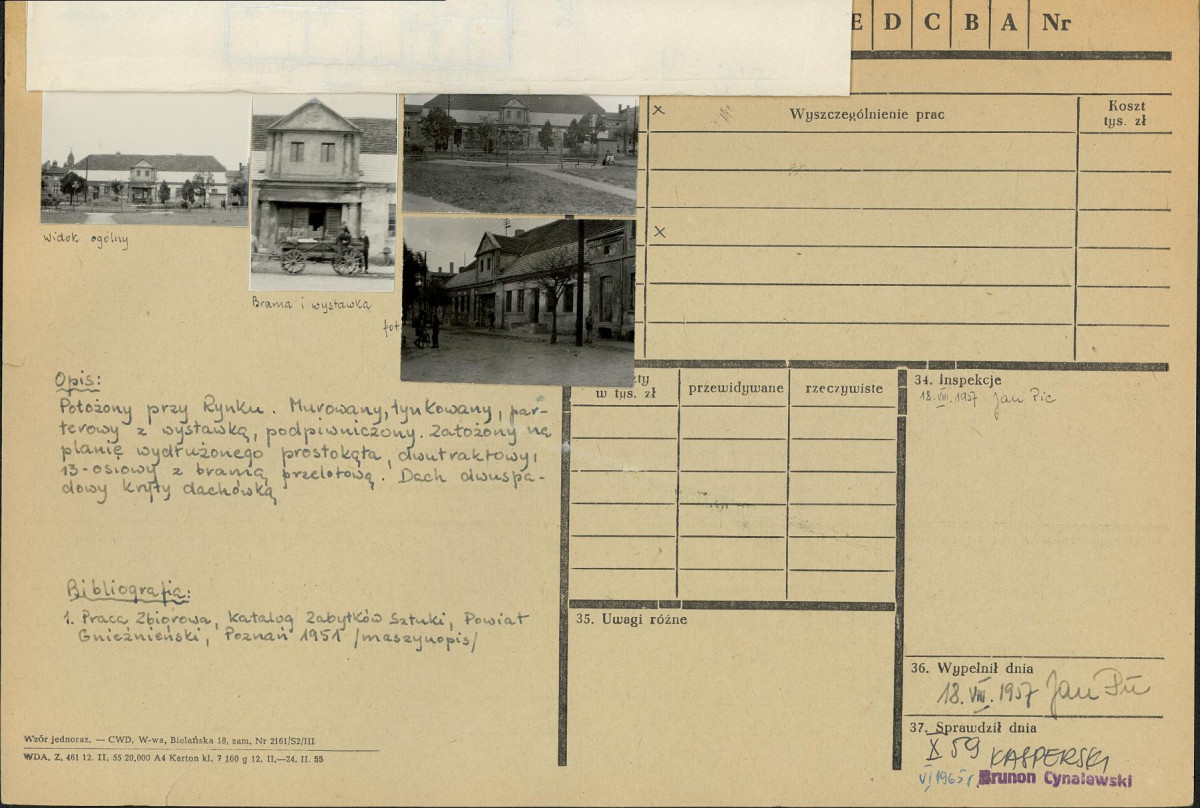 E D C B A Nr
x Wyszczególnienie prac
Koszt
tys. zł
x
widok ogólny
Brama i wystawka
fot
Opis:
Położony przy Rynku. Murowany, tynkowany, par-
terowy z wystawką, podpiwniczony. Założony na
planie wydłużonego prostokąta, dwutraktowy,
13-osiowy z bramą przelotową. Dach dwuspa-
dowy kryty dachówką
Bibliografia:
1. Praca Zbiorowa, Katalog Zabytków Sztuki, Powiat
Gnieźnieński, Poznań 1951 /maszynopis/
Wzór jednoraz. — CWD, W-wa, Bielańska 18, zam. Nr 2161/S2/III
WDA. Z. 461 12. II. 55 20.000 A4 Karton kl. 7 160 g 12. II.—24. II. 55
zty
w tys. zł
przewidywane
rzeczywiste
34. Inspekcje
18. VIII. 1957 Jan Pic
35. Uwagi różne
36. Wypełnił dnia
18. VIII. 1957 Jan Pic
37. Sprawdził dnia
X 59 KASPERSKI
VI 1965 r. Brunon Cynalewski